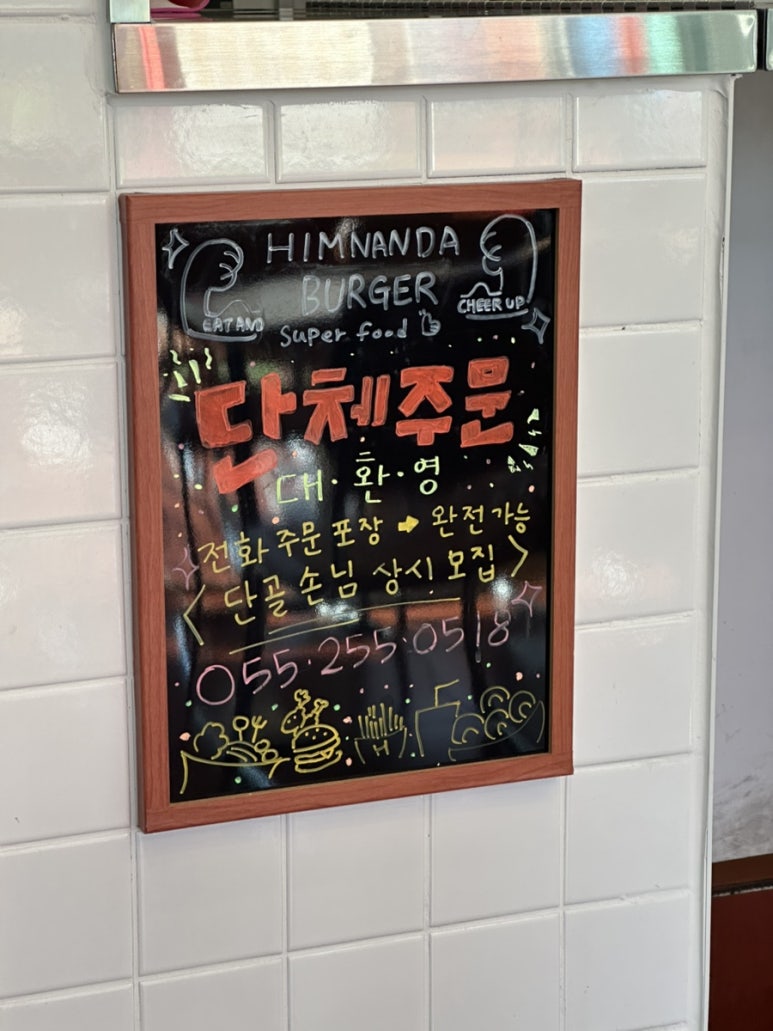 HIMNANDA
BURGER
EAT AND
CHEER UP
super food
단체주문
대·환·영
전화 주문 포장 ➡ 완전가능
<단골 손님 상시 모집>
055·255·0518
H